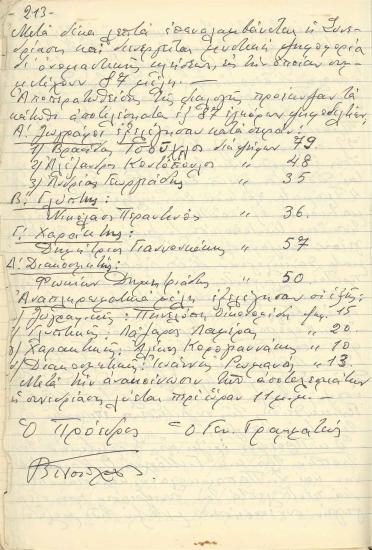 - 213 -
Μετά δέκα λεπτά επαναλαμβάνεται η Συνε-
δρίασις και διενεργείται μυστική ψηφοφορία
δι' ονομαστικής κλήσεως, εις την οποίαν συμ-
μετέχουν 87 μέλη.
Αποπερατωθείσης της διαλογής προέκυψαν τα
κάτωθι αποτελέσματα εξ 87 εγκύρων ψηφοδελτίων.
Α! Ζωγράφοι εξελέγησαν κατά σειράν:
1) Βρασίδας Τσούχλος διά ψήφων 79
2) Αλέξανδρος Κοντόπουλος " 48
3) Ανδρέας Γεωργιάδης " 35
Β! Γλύπτης:
Νικόλαος Περαντινός " 36.
Γ! Χαράκτης:
Δημήτριος Γιαννουκάκης " 57
Δ! Διακοσμητής:
Φωκίων Δημητριάδης " 50
Αναπληρωματικά μέλη εξελέγησαν οι εξής:
α) Ζωγραφικής: Πηνελόπη Οικονομίδη ψηφ. 15
β) Γλυπτικής: Λάζαρος Λαμέρας " 20.
γ) Χαρακτικής: Λουκία " 10
δ) Διακοσμητικής: Ιωάννης Ρωμανός " 13.
Μετά την ανακοίνωσιν των αποτελεσμάτων
η συνεδρίασις λύεται περί ώραν 11 μ.μ. —
Ο Πρόεδρος — Ο Γεν. Γραμματεύς